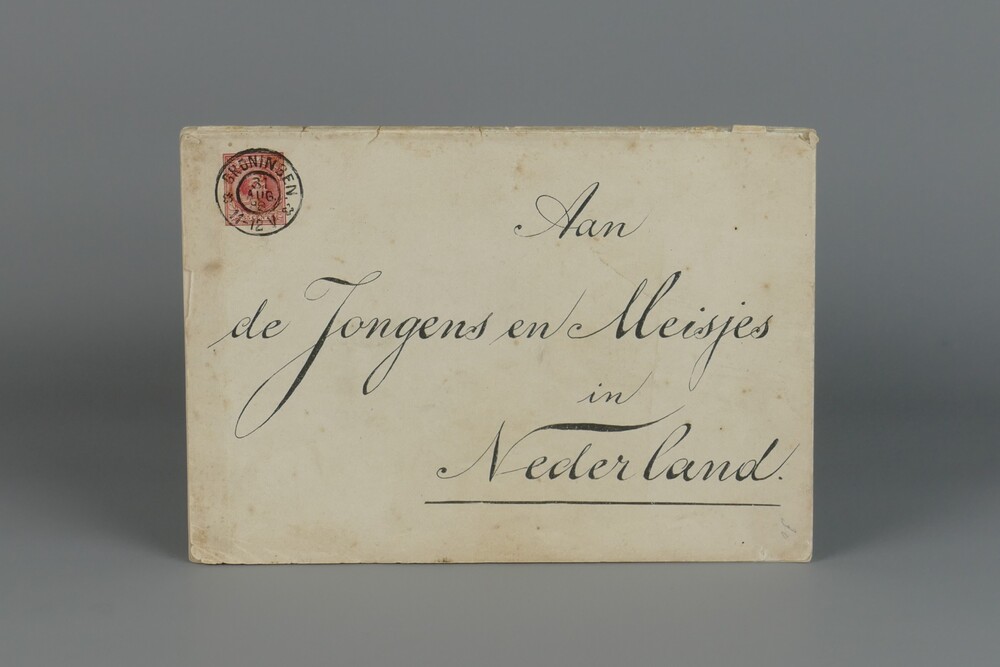 GRONINGEN
31
AUG
11-12 V
Aan
de Jongens en Meisjes
in
Nederland.